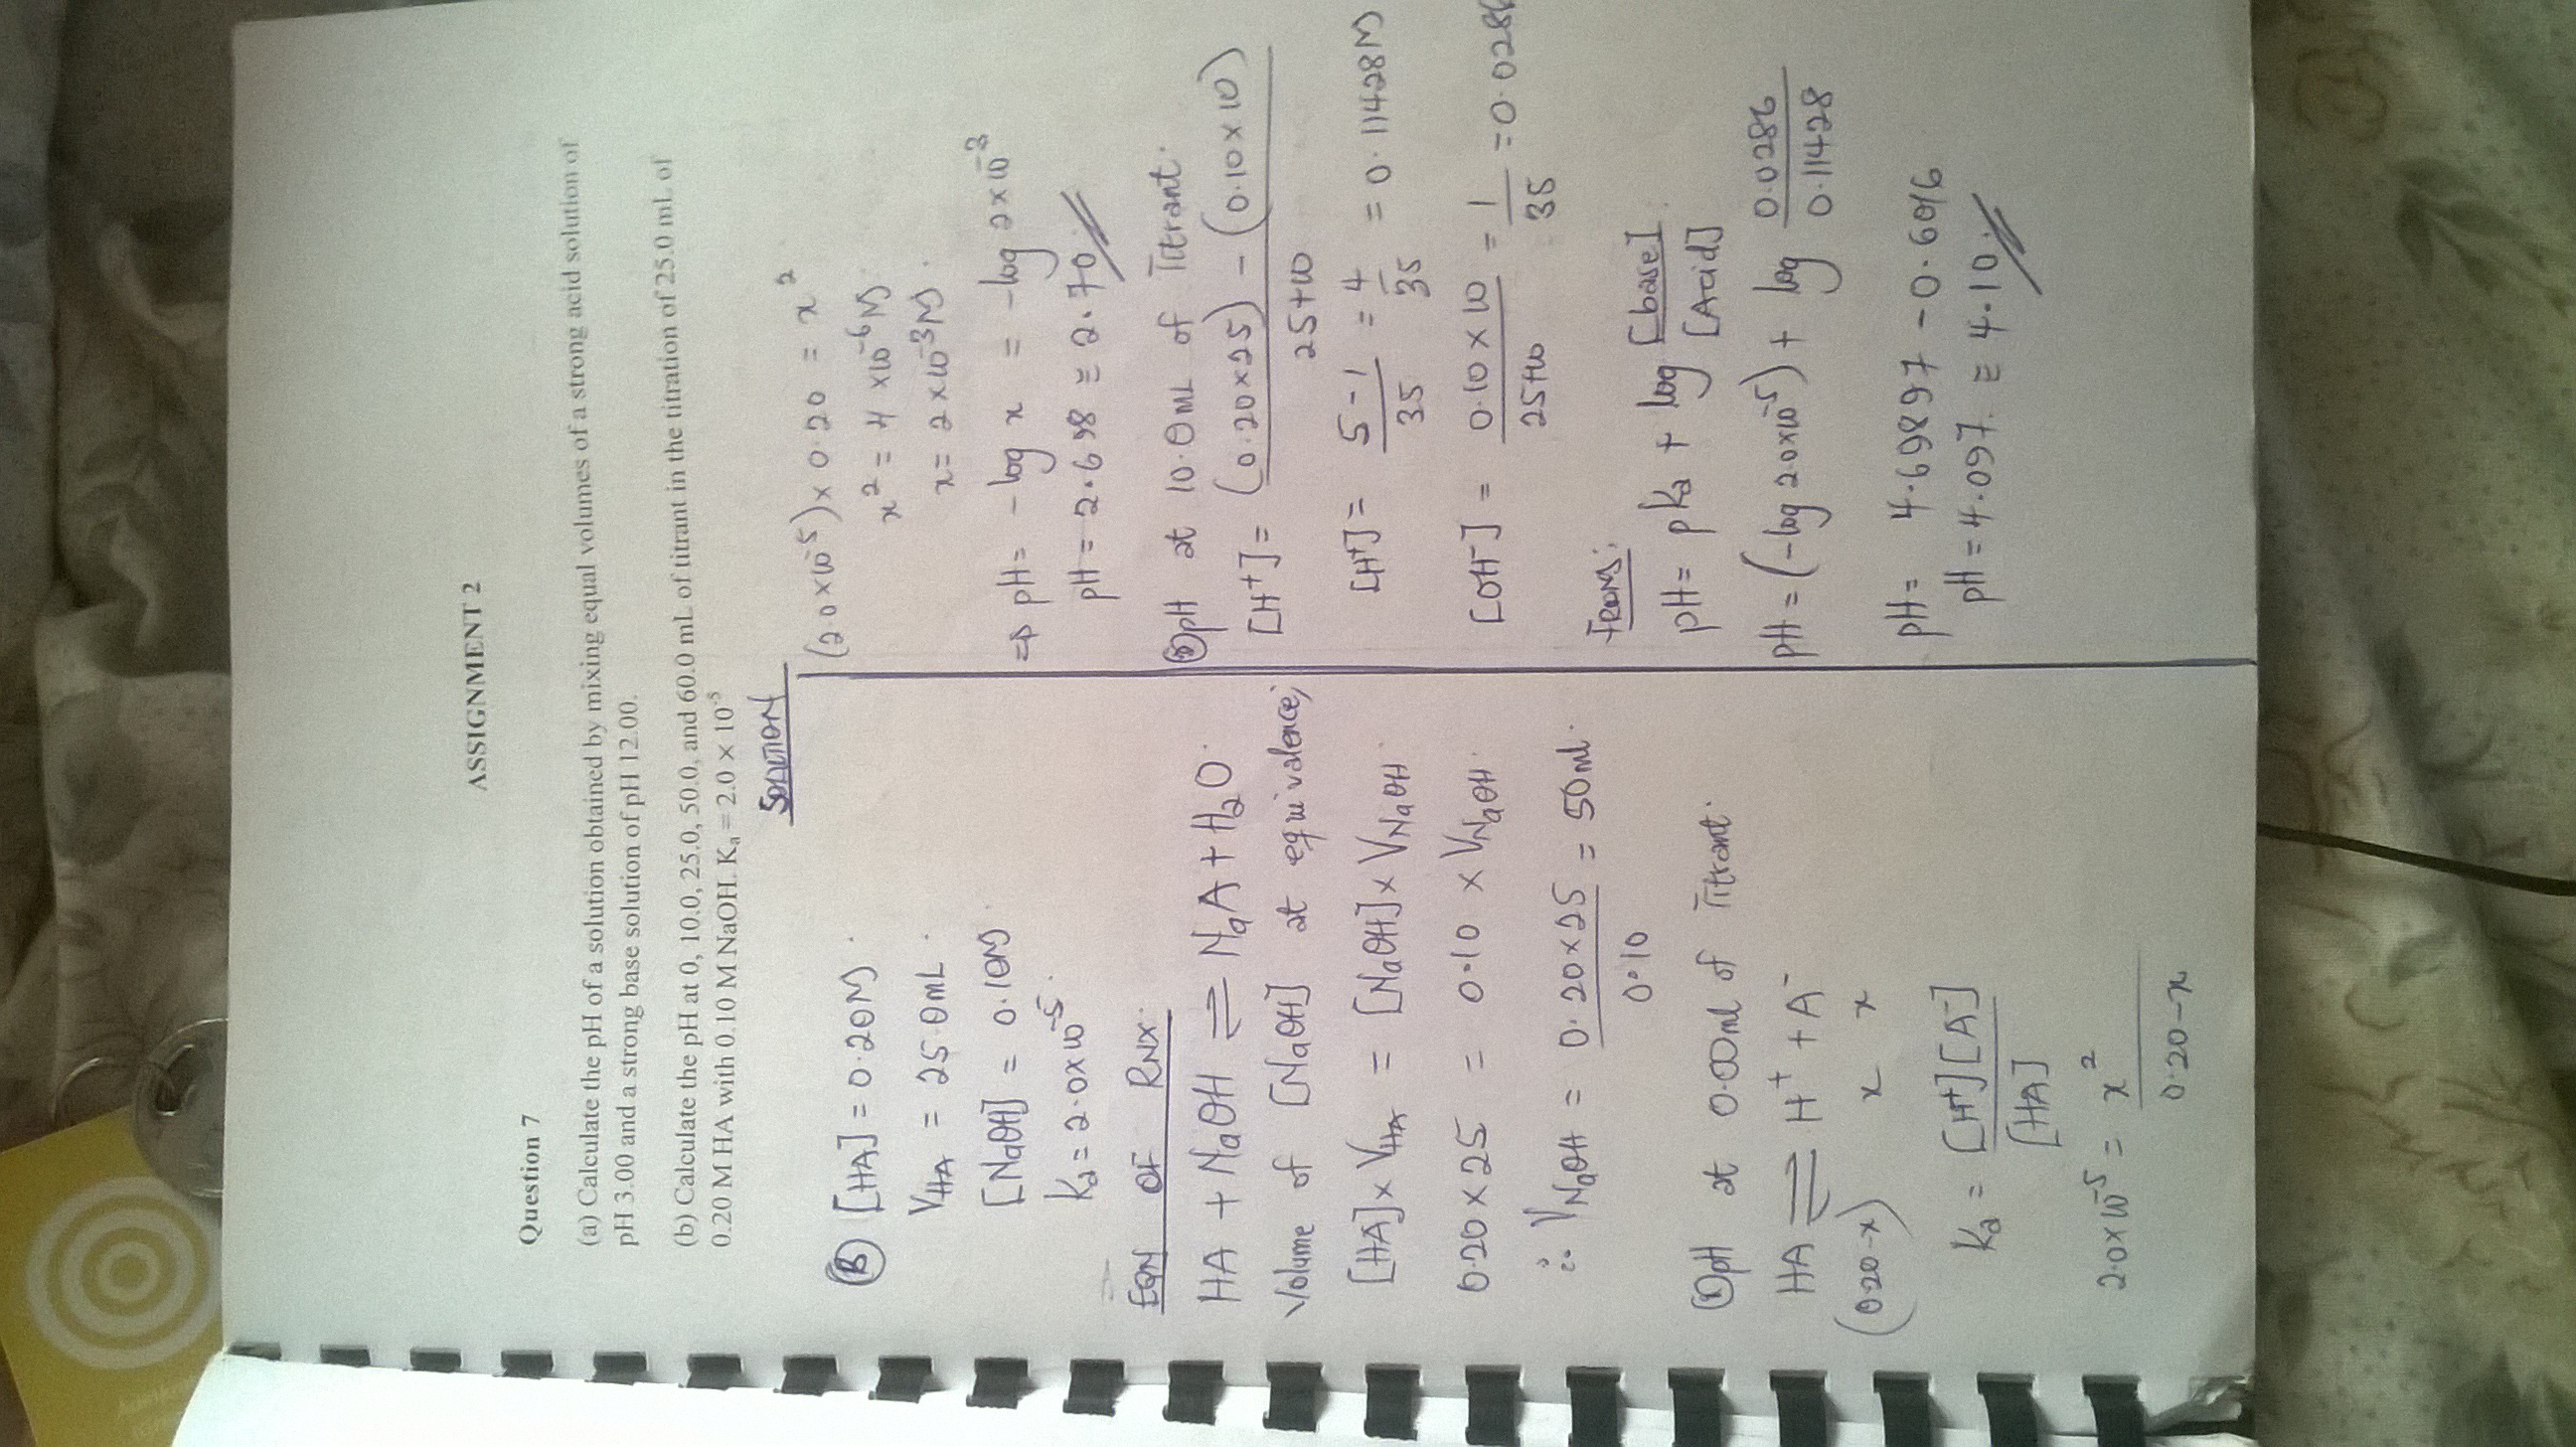 ASSIGNMENT 2
Question 7
(a) Calculate the pH of a solution obtained by mixing equal volumes of a strong acid solution of
pH 3.00 and a strong base solution of pH 12.00.
(b) Calculate the pH at 0, 10.0, 25.0, 50.0, and 60.0 mL of titrant in the titration of 25.0 mL of
0.20 M HA with 0.10 M NaOH. Kₐ = 2.0 × 10⁻⁵
SOLUTION
(B) [HA] = 0.20M.
V_HA = 25.0mL.
[NaOH] = 0.10M
Ka = 2.0×10⁻⁵.
EQN OF RNX.
HA + NaOH ⇌ NaA + H₂O.
Volume of [NaOH] at equivalence;
[HA] × V_HA = [NaOH] × V_NaOH.
0.20 × 25 = 0.10 × V_NaOH.
∴ V_NaOH = 0.20×25 = 50ml.
0.10
pH at 0.00ml of Titrant.
HA ⇌ H⁺ + A⁻
(0.20-x) x x
Ka = [H⁺][A⁻]
[HA]
2.0×10⁻⁵ = x²
0.20-x
(2.0×10⁻⁵) × 0.20 = x²
x² = 4×10⁻⁶M.
x = 2×10⁻³M.
⇒ pH = -log x = -log 2×10⁻³
pH = 2.698 ≡ 2.70
pH at 10.0mL of Titrant.
[H⁺] = (0.20×25) - (0.10×10)
25+10
[H⁺] = 5-1 = 4 = 0.11428M
35 35
[OH⁻] = 0.10×10 = 1 = 0.0286
25+10 35
FROM:
pH = pKa + log [base]
[Acid]
pH = (-log 2.0×10⁻⁵) + log 0.0286
0.11428
pH = 4.69897 - 0.6016
pH = 4.097 ≡ 4.10.